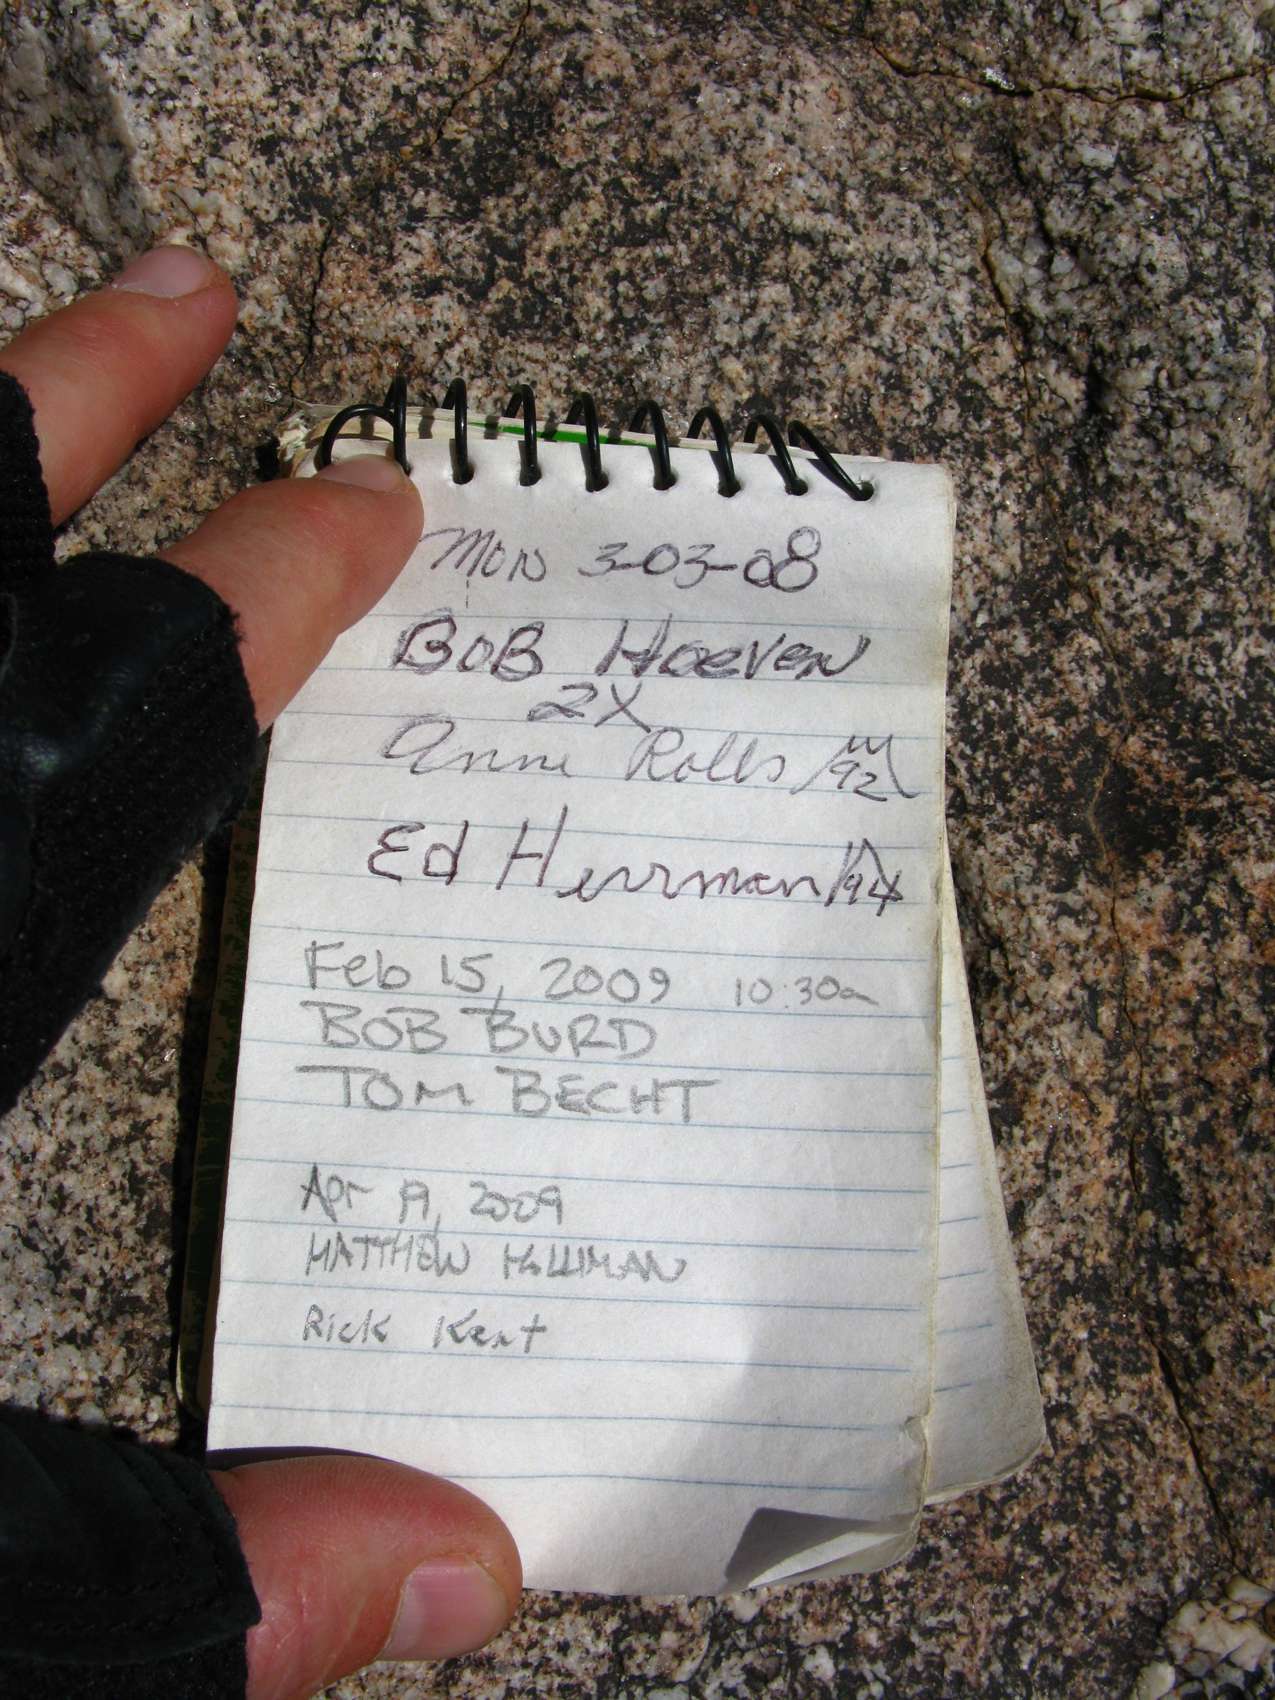 Mon 3-03-08
BOB Hoeven
2X
Anne Rolls
Ed Herrman
Feb 15, 2009 10:30a
BOB BURD
TOM BECHT
Apr 19, 2009
MATTHEW HOLLIMAN
Rick Kent